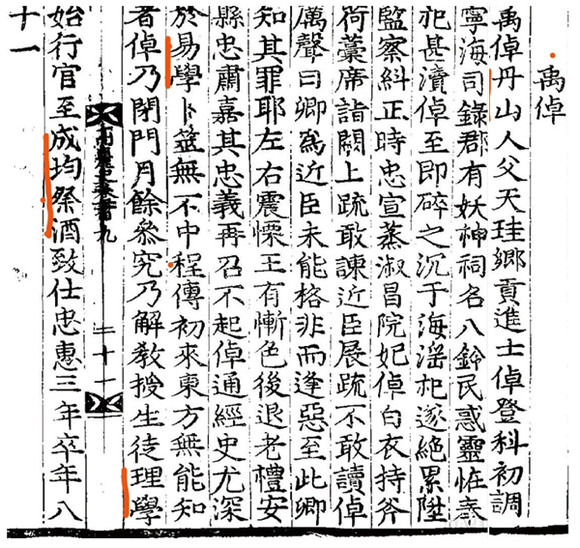 禹倬
禹倬丹山人父天珪鄉貢進士倬登科初調
寧海司錄郡有妖神祠名八鈴民惑靈恠奉
祀甚瀆倬至即碎之沉于海淫祀遂絶累陞
監察糾正時忠宣蒸淑昌院妃倬白衣持斧
荷藁席詣闕上疏敢諫近臣展疏不敢讀倬
厲聲曰卿爲近臣未能格非而逢惡至此卿
知其罪耶左右震慄王有慚色後退老禮安
縣忠肅嘉其忠義再召不起倬通經史尤深
於易學卜筮無不中程傳初來東方無能知
者倬乃閉門月餘叅究乃解敎授生徒理學
九
二十一
始行官至成均祭酒致仕忠惠三年卒年八
十一